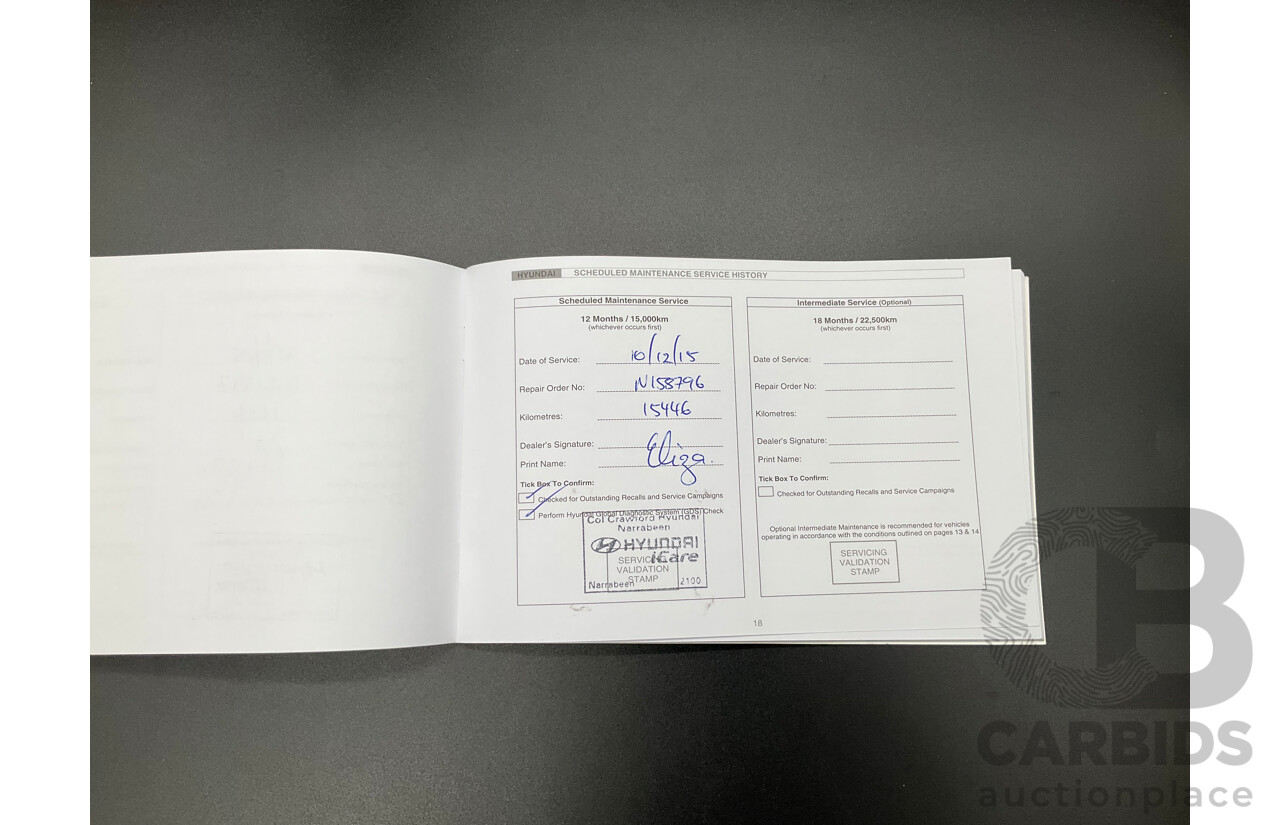 HYUNDAI SCHEDULED MAINTENANCE SERVICE HISTORY
Scheduled Maintenance Service
12 Months / 15,000km
(whichever occurs first)
Date of Service: 10/12/15
Repair Order No: N158796
Kilometres: 15446
Dealer's Signature:
Print Name: Eliza.
Tick Box To Confirm:
Checked for Outstanding Recalls and Service Campaigns
Perform Hyundai Global Diagnostic System (GDS) Check
Col Crawford Hyundai
Narrabeen
HYUNDAI
iCare
SERVICING
VALIDATION
STAMP
Narrabeen 2100
Intermediate Service (Optional)
18 Months / 22,500km
(whichever occurs first)
Date of Service:
Repair Order No:
Kilometres:
Dealer's Signature:
Print Name:
Tick Box To Confirm:
Checked for Outstanding Recalls and Service Campaigns
Optional Intermediate Maintenance is recommended for vehicles
operating in accordance with the conditions outlined on pages 13 & 14
SERVICING
VALIDATION
STAMP
18
CB
CARBIDS
auctionplace